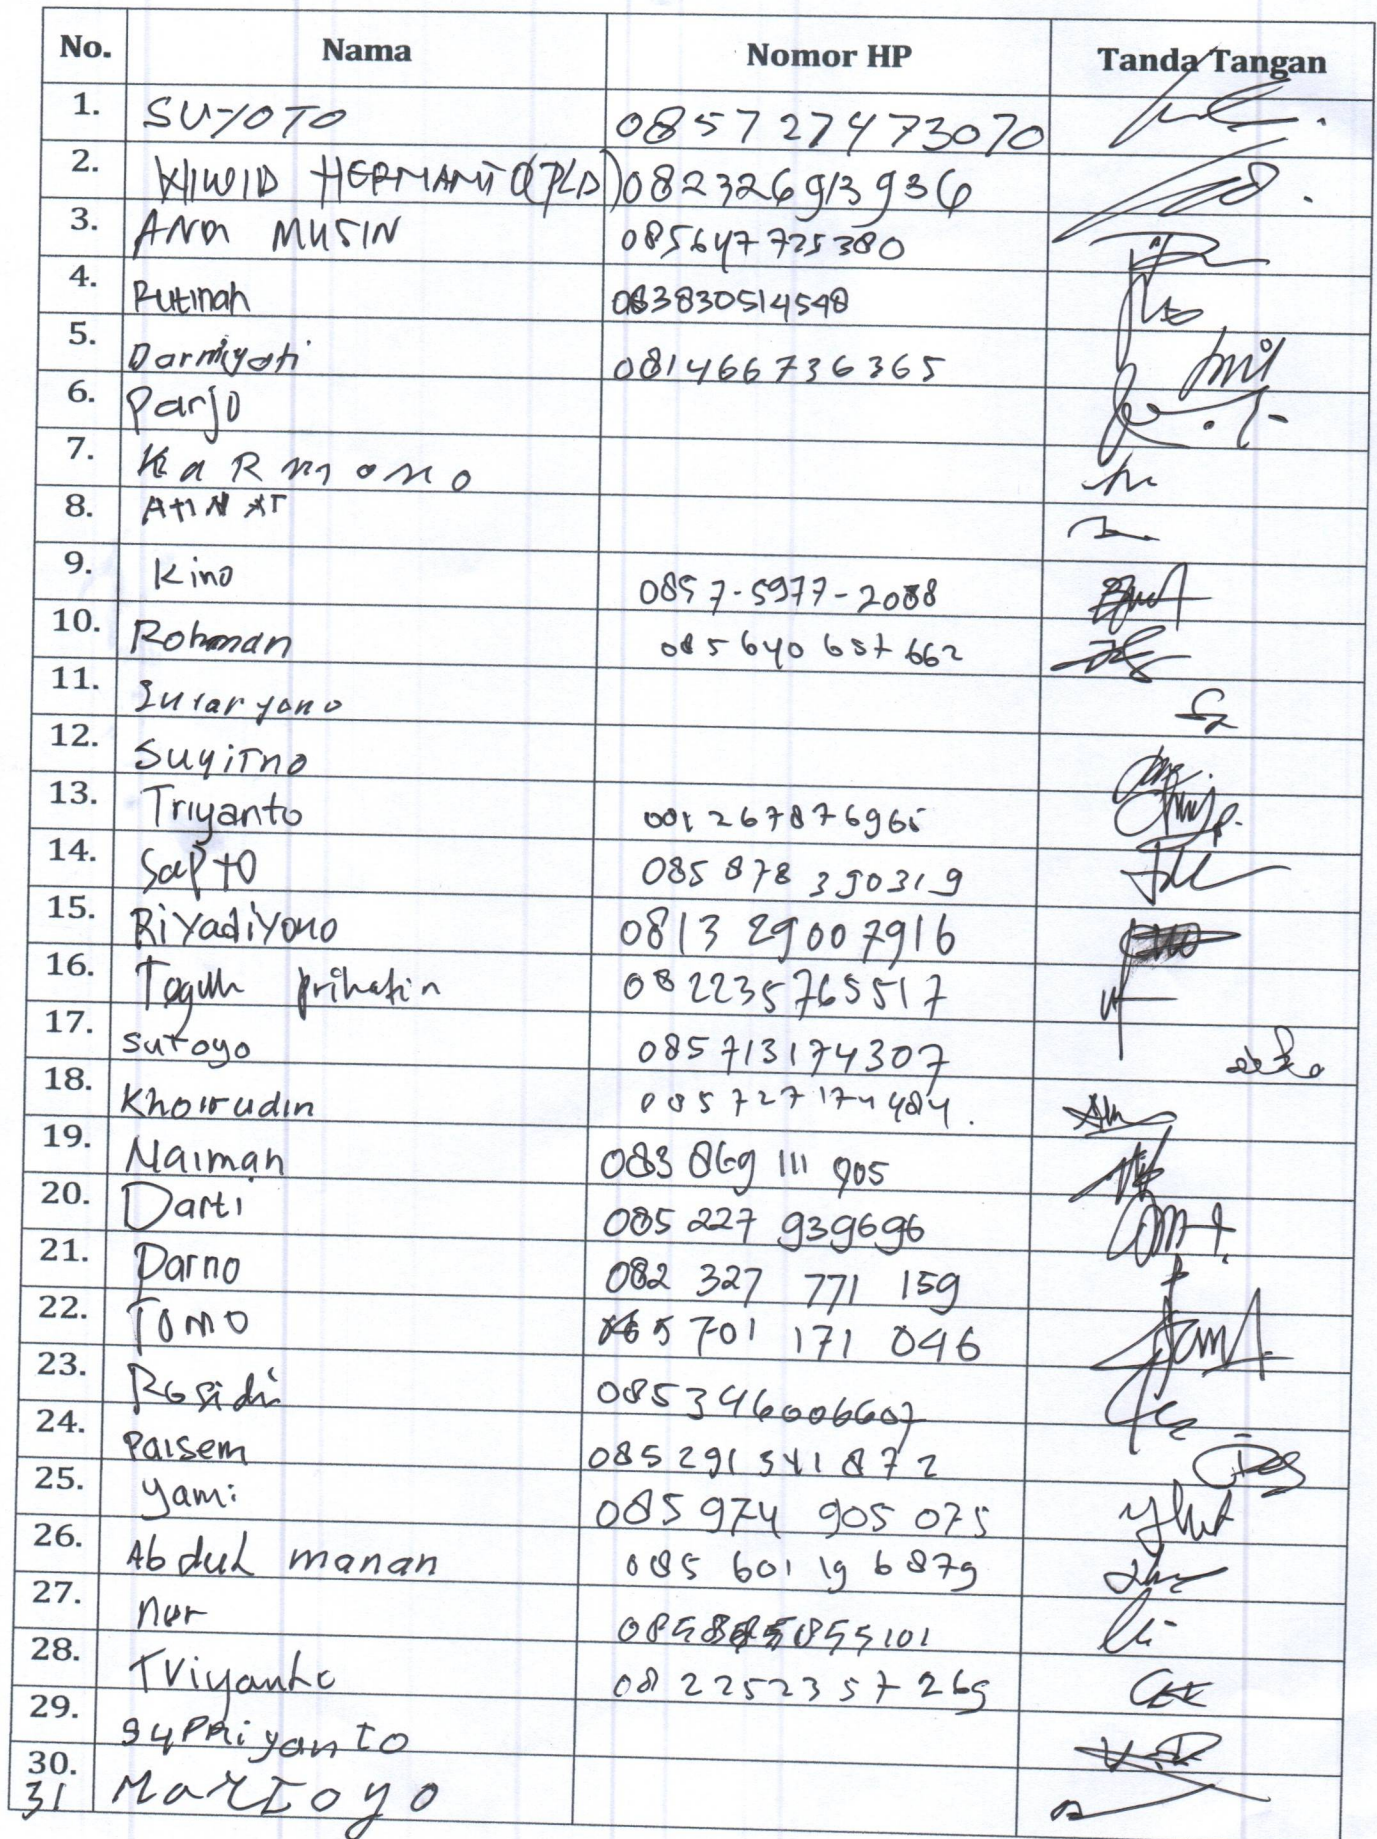 No. Nama Nomor HP Tanda Tangan
1. SUYOTO 085727473070
2. WIWID HERMANTO (PLD) 082326913936
3. ANA MUSIN 085647725380
4. Rutinah 083830514548
5. Darmiyati 081466736365
6. Parjo
7. KaRmono
8.
9. Kino 0857-5977-2088
10. Rohman 085640 657 662
11. Sularyono
12. Suyitno
13. Triyanto
14. Sapto 085 878 390319
15. RiYadiYono 0813 29007916
16. Teguh prihatin 082235765517
17. Sutoyo 085713174307
18. Khoirudin 085727174484.
19. Naiman 083 869 111 905
20. Darti 085 227 939696
21. Darno 082 327 771 159
22. TOMO 085 701 171 046
23. Rosidi 085346006607
24. Paisem 085 291 541 872
25. Yami 085 974 905 075
26. Abdul manan 085 601 19 6879
27. nur
28. Triyanto 08 2252357 269
29. SupRiyanto
30.
31 Martoyo